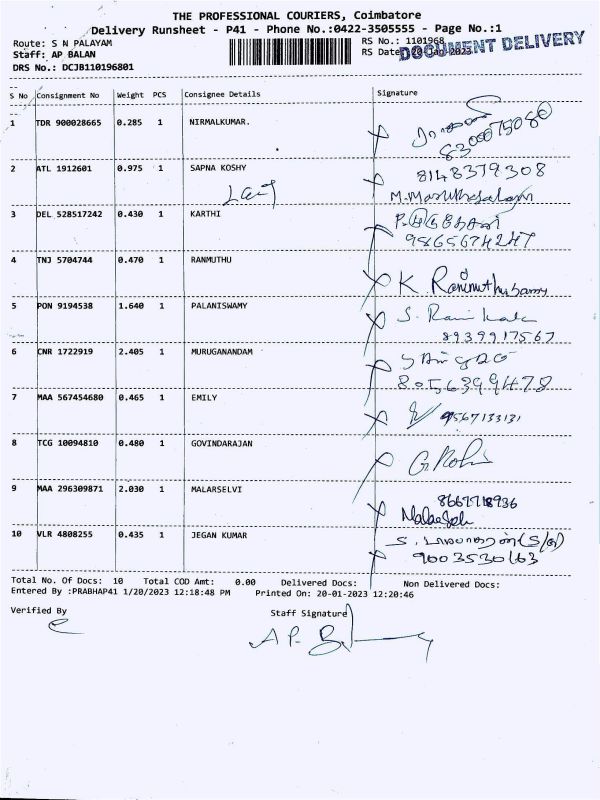 THE PROFESSIONAL COURIERS, Coimbatore
Delivery Runsheet - P41 - Phone No.:0422-3505555 - Page No.:1
Route: S N PALAYAM
RS No.: 1101968
Staff: AP BALAN
RS Date: 20-Jan-2023
DOCUMENT DELIVERY
DRS No.: DCJB110196801
S No Consignment No Weight PCS Consignee Details Signature
1 TDR 900028665 0.285 1 NIRMALKUMAR.
2 ATL 1912601 0.975 1 SAPNA KOSHY 8148379308
3 DEL 528517242 0.430 1 KARTHI
9865674247
4 TNJ 5704744 0.470 1 RANMUTHU
K Ranimuthusamy
5 PON 9194538 1.640 1 PALANISWAMY
8939917567
6 CNR 1722919 2.405 1 MURUGANANDAM
8056399478
7 MAA 567454680 0.465 1 EMILY 9567133131
8 TCG 10094810 0.480 1 GOVINDARAJAN
9 MAA 296309871 2.030 1 MALARSELVI
8667718936
10 VLR 4808255 0.435 1 JEGAN KUMAR
9003530163
Total No. Of Docs: 10 Total COD Amt: 0.00 Delivered Docs: Non Delivered Docs:
Entered By :PRABHAP41 1/20/2023 12:18:48 PM Printed On: 20-01-2023 12:20:46
Verified By Staff Signature